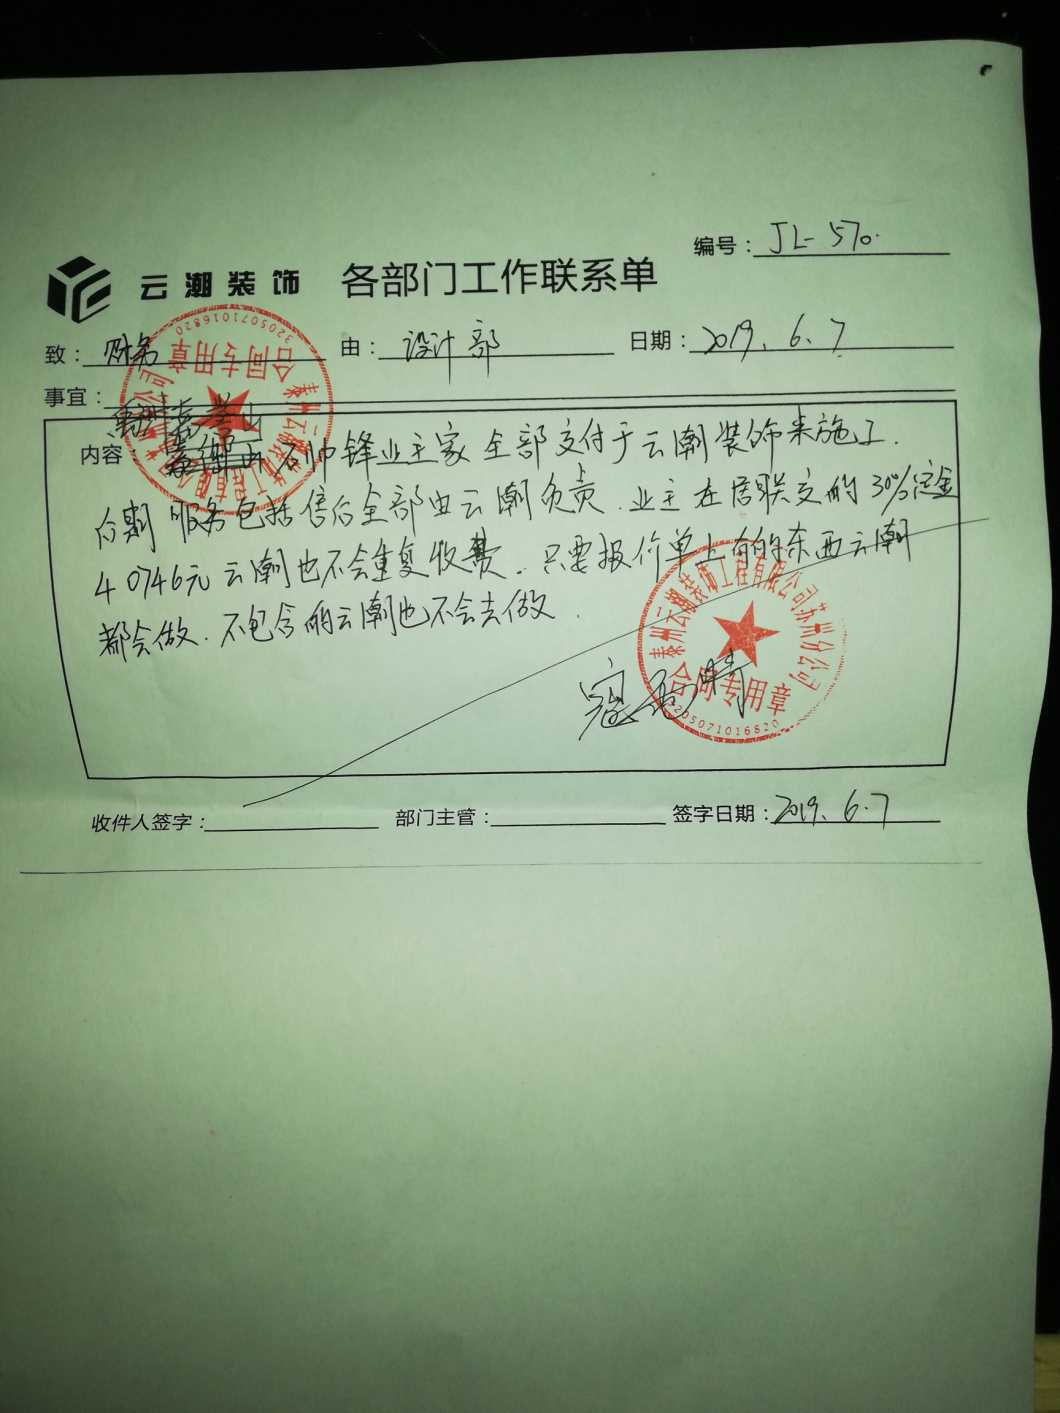 编号：JL-570.
云潮装饰 各部门工作联系单
致：财务 由：设计部 日期：2019.6.7
事宜：
内容： 石帅锋业主家全部交付于云潮装饰来施工.
后期服务包括售后全部由云潮负责.业主在居联交的30%定金
40746元云潮也不会重复收费.只要报价单上有的东西云潮
都会做.不包含的云潮也不会去做.
泰州云潮装饰工程有限公司苏州分公司
合同专用章
3205071016820
泰州云潮装饰工程有限公司苏州分公司
合同专用章
3205071016820
收件人签字： 部门主管： 签字日期：2019.6.7